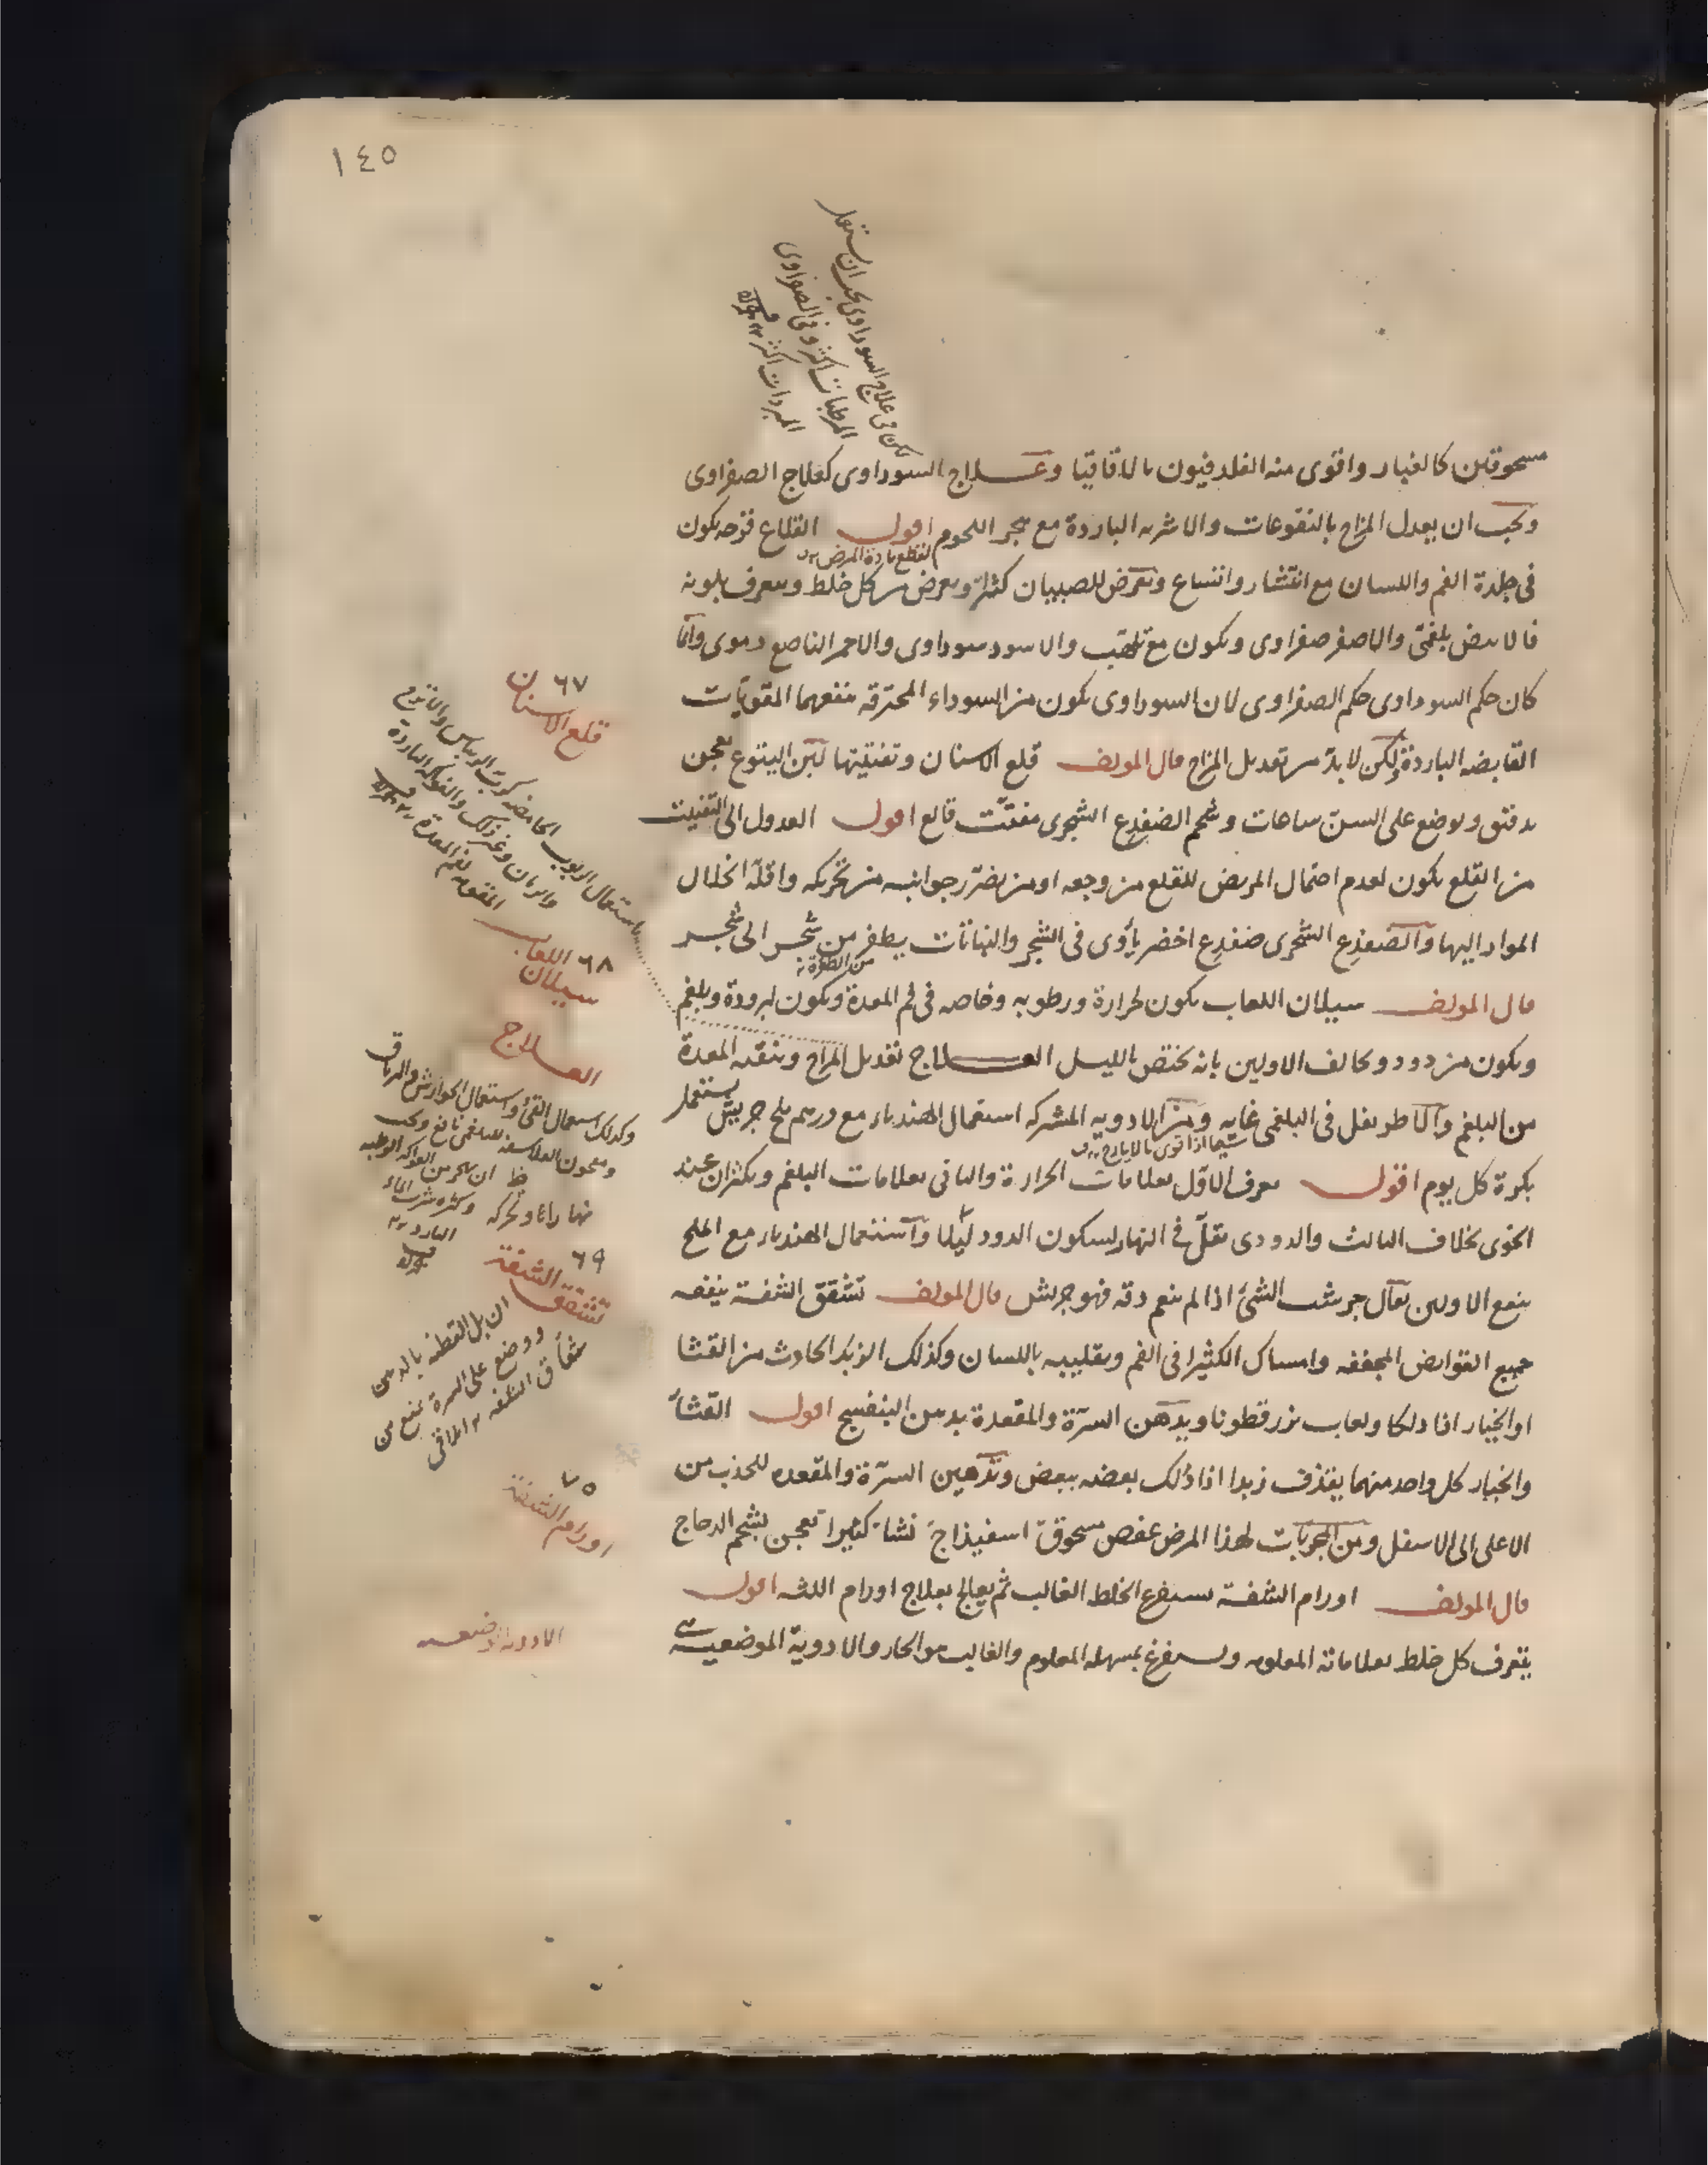 ١٤٥
لكن في علاج السوداوي يجب ان يستعمل
المرطبات اكثر وفي الصفراوي
المبردات اكثر
مسحوقين كالغبار واقوى منه الفلدفيون بالاقاقيا وعلاج السوداوى كعلاج الصفراوى
ويجب ان يعدل المزاج بالنقوعات والاشربه الباردة مع هجر اللحوم اقول القلاع قرحه يكون
لتقطع مادة المرض
فى جلدة الفم واللسان مع انتشار واتساع وتعرض للصبيان كثيرا ويعرض من كل خلط ويعرف بلونه
فالابيض بلغمى والاصفر صفراوى ويكون مع تلهب والاسود سوداوى والاحمر الناصع دموى وانما
كان حكم السوداوى حكم الصفراوى لان السوداوى يكون من السوداء المحترقه فنفعهما المقويات
القابضه الباردة ولكن لا بد من تعديل المزاج قال المولف قلع الاسنان وتفتيتها لبن اليتوع يعجن
بدقيق ويوضع على السن ساعات وشحم الضفدع الشجرى مفتت قالع اقول العدول الى التفتيت
من القلع يكون لعدم احتمال المريض للقلع من وجعه او من يضرر جوانبه من تحريكه واقله انحلال
المواد اليها والضفدع الشجرى ضفدع اخضر يأوى فى الشجر والنباتات يطفر من شجر الى شجر
من الطفرة
قال المولف سيلان اللعاب يكون لحرارة ورطوبه وخاصه فى فم المعدة ويكون لبرودة وبلغم
ويكون من دود ويخالف الاولين بانه يختص بالليل العلاج تعديل المزاج وينقيه المعدة
من البلغم والاطريفل فى البلغمى غايه ومن الادويه المشتركه استعمال الهندباء مع درهم ملح جريش يستعمل
سيما اذا قوى بالايارج
بكرة كل يوم اقول يعرف الاول بعلامات الحرارة والثانى بعلامات البلغم ويكثران عند
الخوى بخلاف الثالث والدودى يقل فى النهار لسكون الدود ليلا واستعمال الهندباء مع الملح
ينفع الاولين يقال جرشت الشئ اذا لم ينعم دقه فهو جريش قال المولف تشقق الشفة ينفعه
جميع القوابض المجففه وامساك الكثيرا فى الفم وتقليبه باللسان وكذلك الزبد الحادث من القثا
او الخيار اذا دلكا ولعاب بزرقطونا ويدهن السرة والمقعدة بدهن البنفسج اقول القثاء
والخيار كل واحد منهما يقذف زبدا اذا دلك بعضه ببعض وتدهين السرة والمقعده للجذب من
الاعلى الى الاسفل ومن المجربات لهذا المرض عفص مسحوق اسفيذاج نشا كثيرا تعجن بشحم الدجاج
قال المولف اورام الشفة يستفرغ الخلط الغالب ثم يعالج بعلاج اورام اللثه اقول
يتعرف كل خلط بعلاماته المعلومه ويستفرغ بمسهله المعلوم والغالب هو الحار والادوية الموضعية
٦٧
قلع الاسنان
استعمال الربوب الحامضه كرب الريباس
والرمان وغير ذلك والفواكه الباردة
المقويه لفم المعدة
٦٨ اللعاب
سيلان
العلاج
وكذلك استعمال القئ واستعمال الجوارش
ومعجون الفلاسفه للبلغمى نافع ويجب
ان يحترز من الفواكه الرطبه
وكثرة شرب الماء
البارد
٦٩
تشقق الشفة
ان بل القطنه بالدهن
ووضع على السرة ينفع من
شقاق الشفه
٧٥
اورام الشفة
الادويه الموضعيه